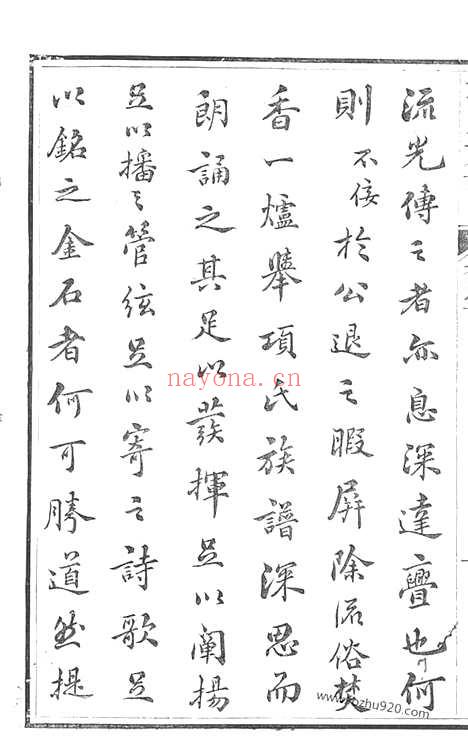 流光傳之者亦息深達亹也何
則不佞於公退之暇屏除流俗焚
香一爐舉項氏族譜深思而
朗誦之其足以發揮足以闡揚
足以播之管絃足以寄之詩歌足
以銘之金石者何可勝道然提
nayona.cn
www.pozhu920.com